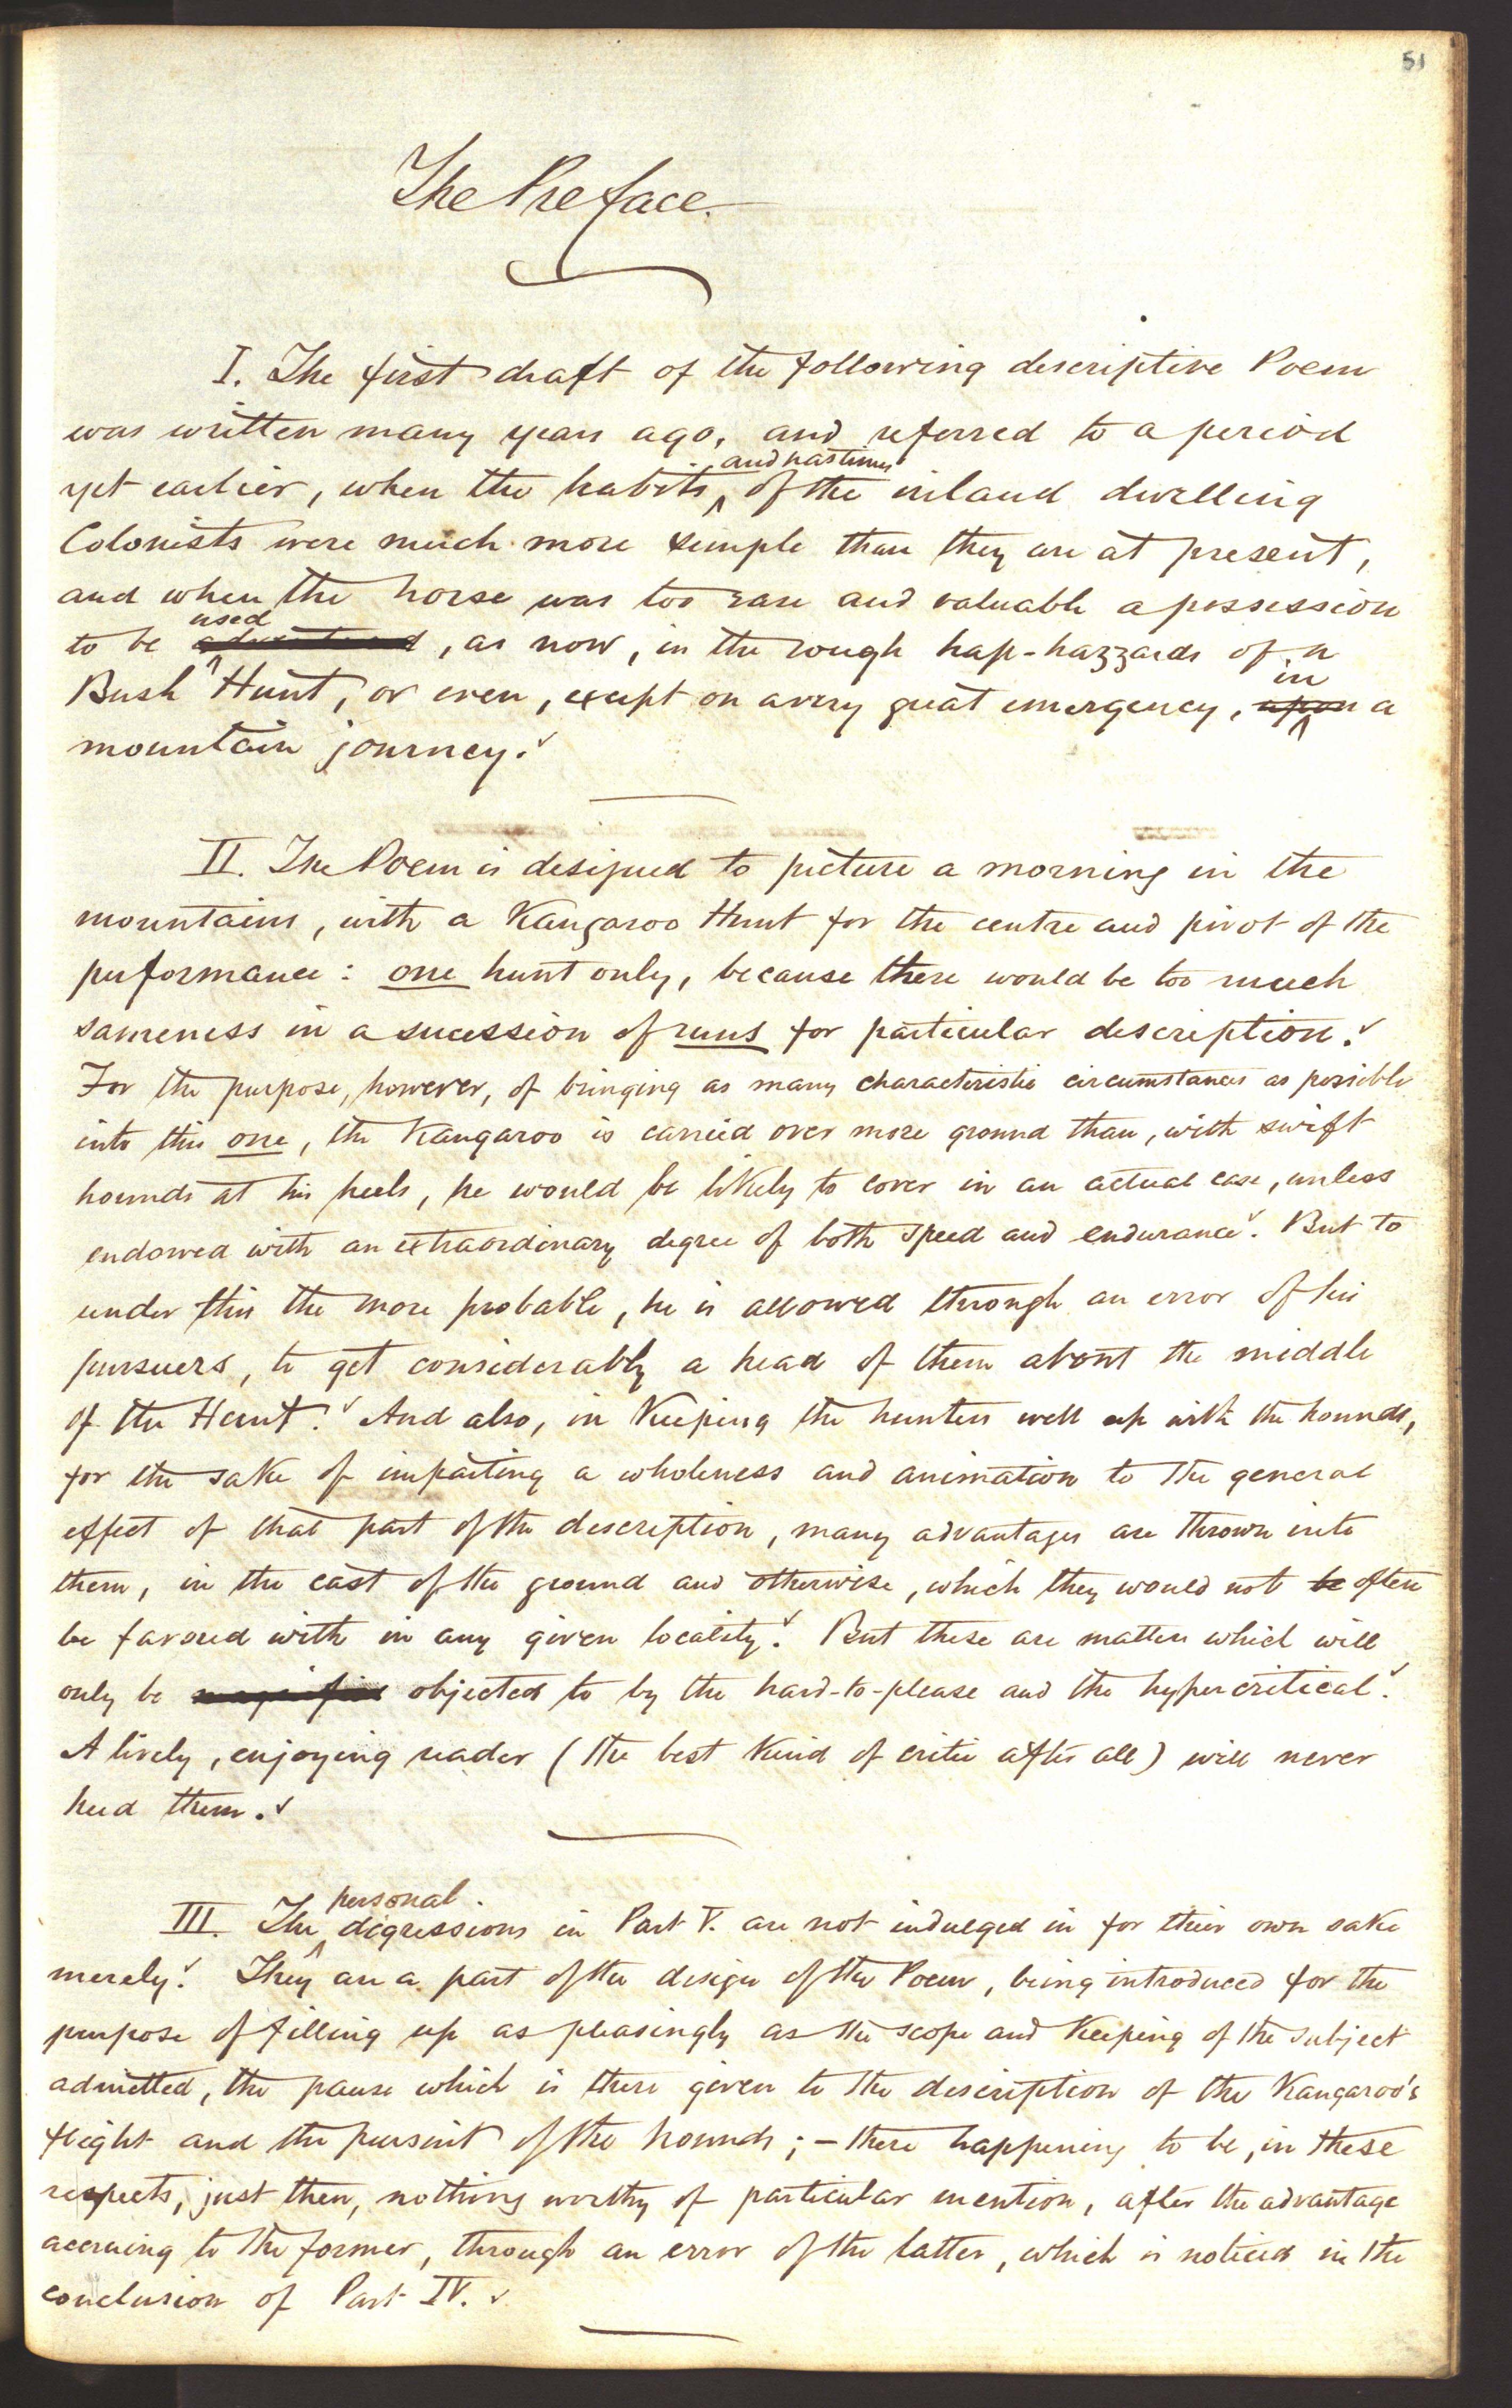 51
The Preface.
I. The first draft of the following descriptive Poem
was written many years ago, and referred to a period
yet earlier, when the habits and pastimes of the inland dwelling
Colonists were much more simple than they are at present,
and when the horse was too rare and valuable a possession
to be used, as now, in the rough hap-hazzards of a
Bush Hunt, or even, except on a very great emergency, upon in a
mountain journey.
II. The Poem is designed to picture a morning in the
mountains, with a Kangaroo Hunt for the centre and pivot of the
performance: one hunt only, because there would be too much
sameness in a sucession of runs for particular description.
For the purpose, however, of bringing as many characteristic circumstances as possible
into this one, the Kangaroo is carried over more ground than, with swift
hounds at his heels, he would be likely to cover in an actual case, unless
endowed with an extraordinary degree of both speed and endurance. But to
render this the more probable, he is allowed through an error of his
pursuers, to get considerably a head of them about the middle
of the Hunt. And also, in Keeping the hunters well up with the hounds,
for the sake of imparting a wholeness and animation to the general
effect of that part of the description, many advantages are thrown into
them, in the cast of the ground and otherwise, which they would not be often
be favored with in any given locality. But these are matters which will
only be objected to by the hard-to-please and the hypercritical.
A lively, enjoying reader (the best Kind of critic after all) will never
heed them.
III. The personal digressions in Part V. are not indulged in for their own sake
merely. They are a part of the design of the Poem, being introduced for the
purpose of filling up as pleasingly as the scope and Keeping of the subject
admitted, the pause which is there given to the description of the Kangaroo's
flight and the pursuit of the hounds; – there happening to be, in these
respects, just then, nothing worthy of particular mention, after the advantage
accruing to the former, through an error of the latter, which is noticed in the
conclusion of Part IV.